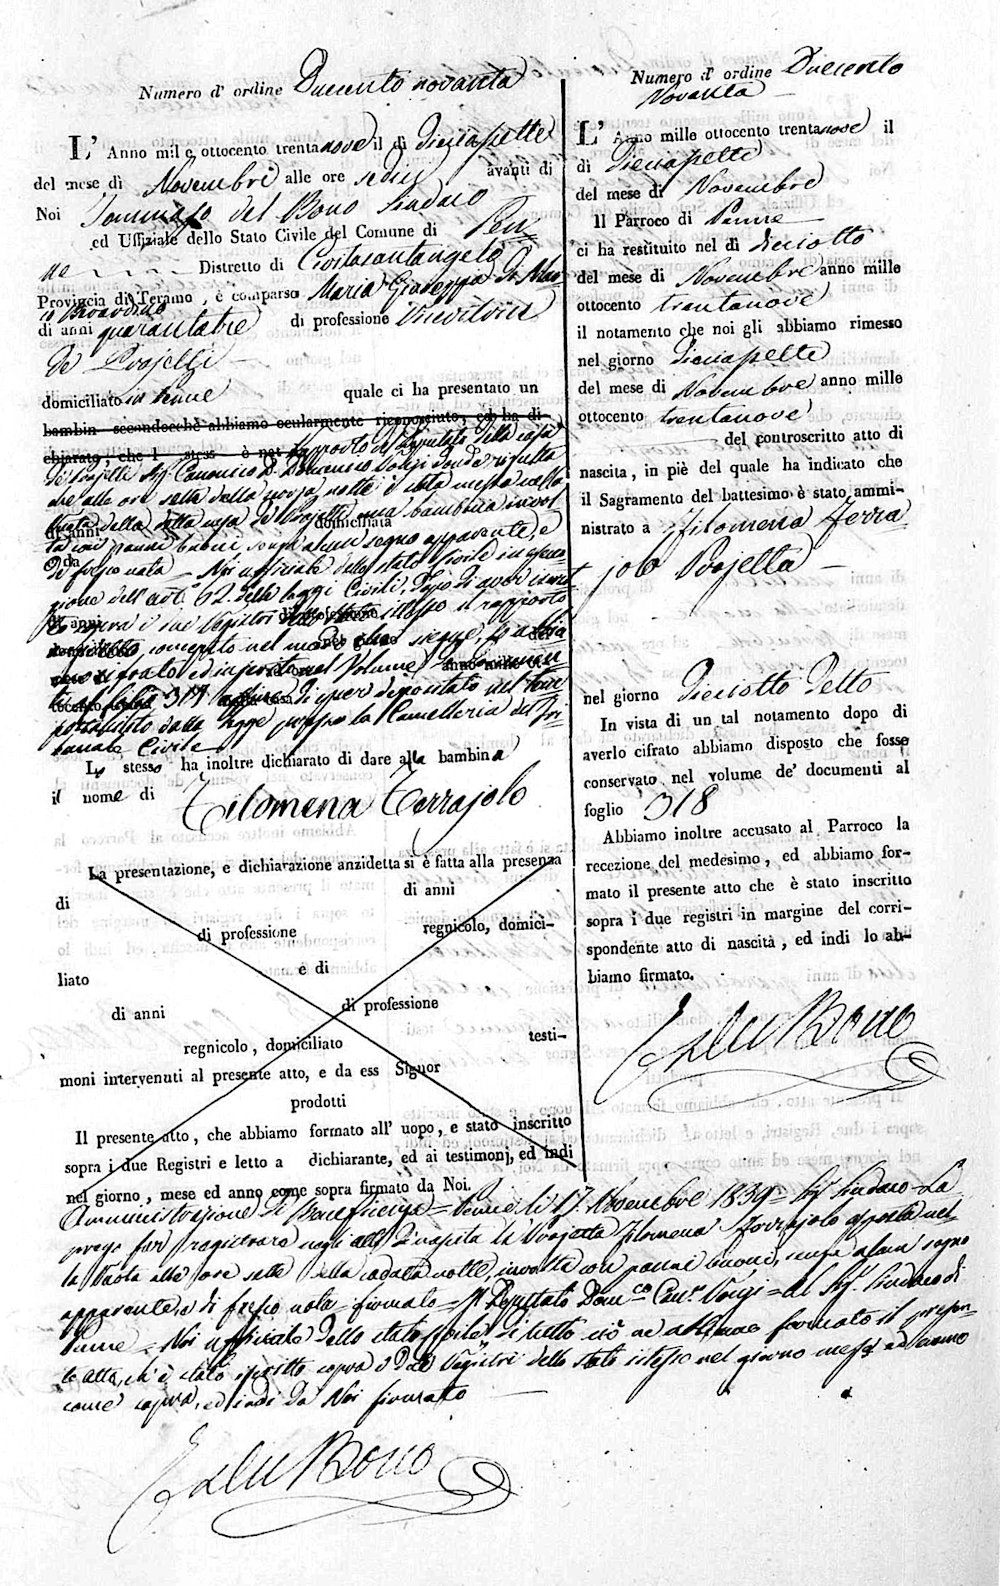 Numero d' ordine Duecento novanta
L' Anno mil e ottocento trentanove il dì diciassette
del mese di Novembre alle ore sedici avanti di
Noi Tommaso del Bono Sindaco
ed Uffiziale dello Stato Civile del Comune di Pen
ne Distretto di Civitasantangelo
Provincia di Teramo, è comparso Maria Giuseppa di
di anni quarantatre di professione
de Projetti
domiciliato in Penne quale ci ha presentato un
bambin secondocchè abbiamo ocularmente riconosciuto, ed ha di-
chiarato, che l stess è nat rapporto del Deputato della casa
de' Projetti Sig. Canonico D. Domenico donde risulta
che alle ore sette della notte è stata messa nella
ruota della detta casa de' Projetti una bambina invol
ta con panni buoni, senza alcun segno apparente, e
di fresco nata Noi uffiziale dello stato Civile in esecu
zione dell' art. 62 delle leggi Civili, dopo di aver iscrit
to sopra i due Registri dello stato istesso il rapporto
concepito nel modo che siegue, lo abbia
mo cifrato ed inserito nel Volume
al foglio 317 per di esser depositato nel tem
po stabilito dalla legge presso la Cancelleria del Tri
bunale Civile
Lo stesso ha inoltre dichiarato di dare alla bambina
il nome di Filomena Terrajolo
La presentazione, e dichiarazione anzidetta si è fatta alla presenza
di di anni
di professione regnicolo, domici-
liato e di
di anni di professione
regnicolo, domiciliato testi-
moni intervenuti al presente atto, e da ess Signor
prodotti
Il presente atto, che abbiamo formato all' uopo, e stato inscritto
sopra i due Registri e letto a dichiarante, ed ai testimonj, ed indi
nel giorno, mese ed anno come sopra firmato da Noi.
Amministrazione di Beneficenza = Penne li 17. Novembre 1839 = Sig. Sindaco = La
prego far registrare negli atti di nascita la Projetta Filomena Terrajolo esposta nel
la Ruota alle ore sette della caduta notte, involta con panni buoni, senza alcun segno
apparente, e di fresco nata = firmato = Il Deputato Domco Canco = Al Sig. Sindaco di
Penne = Noi uffiziale dello stato Civile di tutto ciò ne abbiamo formato il presen
te atto, ch' è stato iscritto sopra i due Registri dello stato istesso nel giorno mese ed anno
come sopra, ed indi da Noi firmato
T del Bono
Numero d' ordine Duecento
Novanta
L' Anno mille ottocento trentanove il
di diciassette
del mese di Novembre
Il Parroco di Penne
ci ha restituito nel dì diciotto
del mese di Novembre anno mille
ottocento trentanove
il notamento che noi gli abbiamo rimesso
nel giorno diciassette
del mese di Novembre anno mille
ottocento trentanove
del controscritto atto di
nascita, in piè del quale ha indicato che
il Sagramento del battesimo è stato ammi-
nistrato a Filomena Terra
jolo Projetta
nel giorno diciotto detto
In vista di un tal notamento dopo di
averlo cifrato abbiamo disposto che fosse
conservato nel volume de' documenti al
foglio 318
Abbiamo inoltre accusato al Parroco la
recezione del medesimo, ed abbiamo for-
mato il presente atto che è stato inscritto
sopra i due registri in margine del corri-
spondente atto di nascità, ed indi lo ab-
biamo firmato.
T del Bono